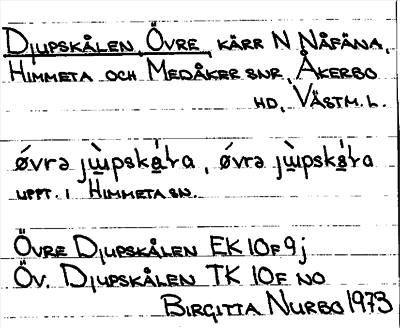 Djupskålen, Övre, kärr N Nåfäna,
Himmeta och Medåker snr, Åkerbo
hd, Västm. l.
óvrə jɯ̀pskaɫa, óvrə jɯ̀pskaɫa
uppt. i Himmeta sn.
Övre Djupskålen EK 10F 9j
Öv. Djupskålen TK 10F NO
Birgitta Nurbo 1973